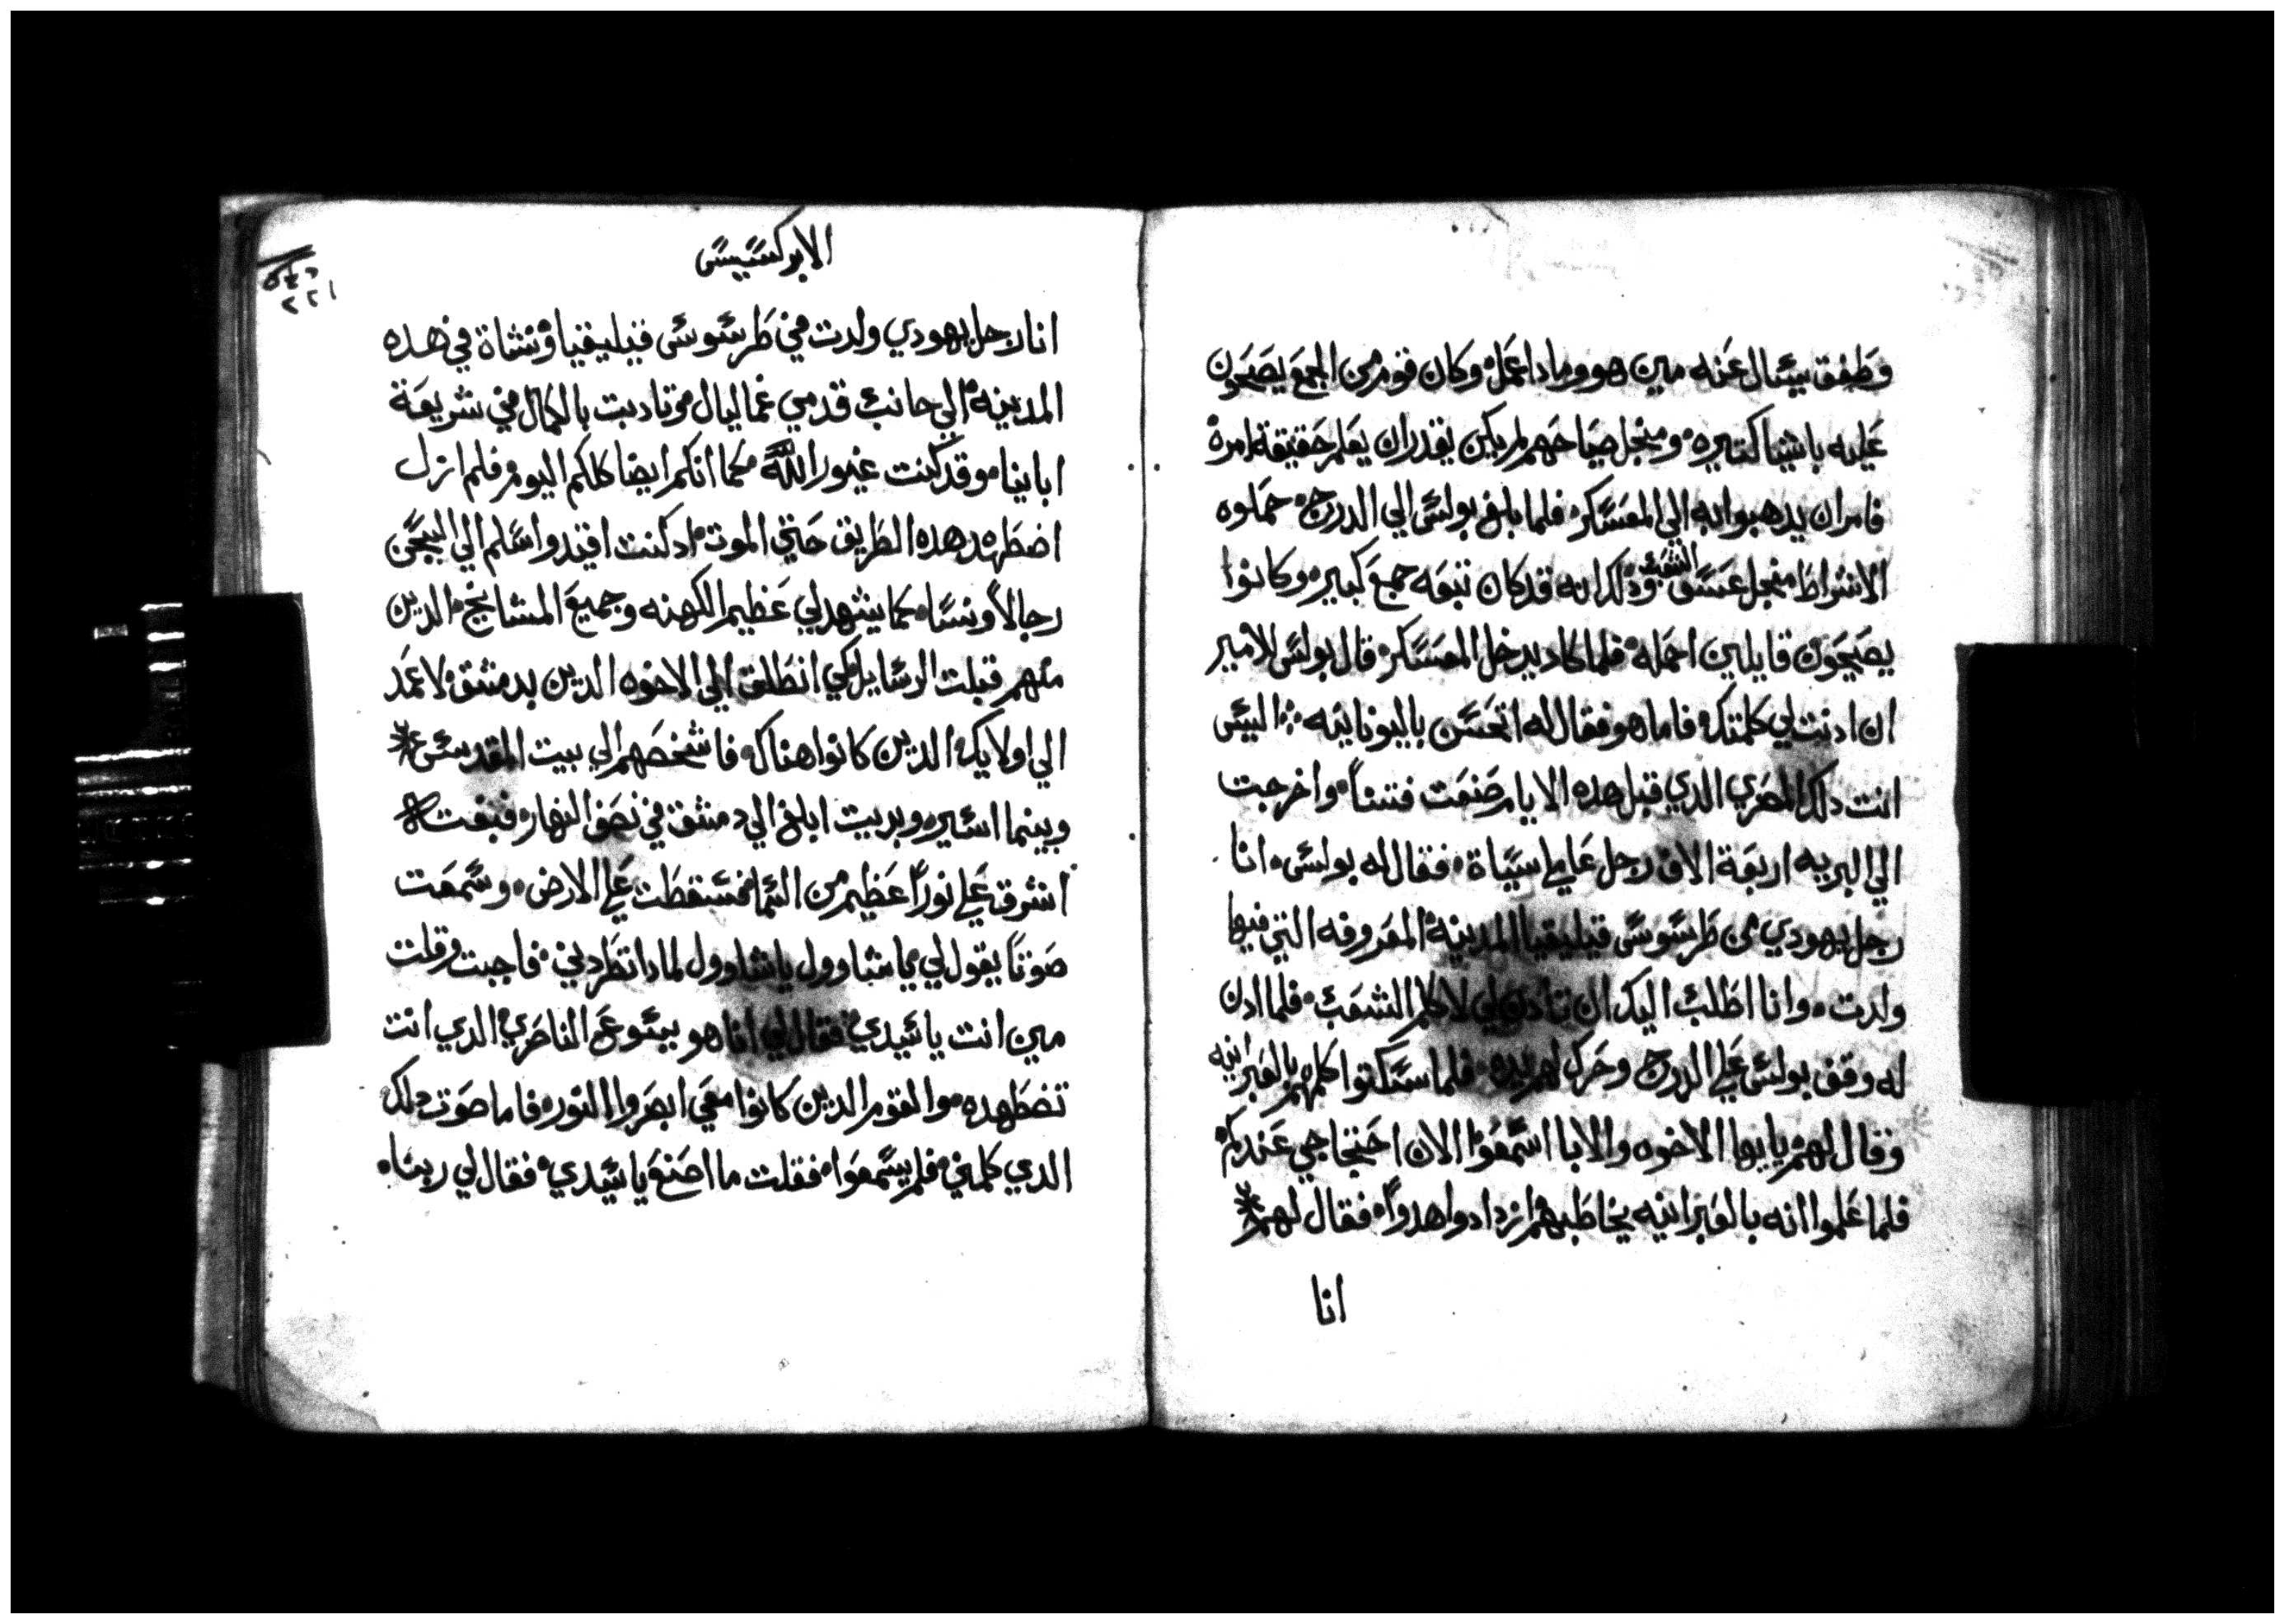 وطفق يسال عنه مين هو وماداعمل وكان قوم من الجمع يصيحون
عليه باشيا كتيره ومنجل صياحهم لم يكن يقدر ان يعلم حقيقة امره
فامر ان يدهبوا به الي المعسكر فلما بلغ بولس الي الدرج حملوه
الاشراط منجل عسق الشعب ودلك انه قد كان تبعه جمع كبير وكانوا
يصيحون قايلين احمله فلما كاد يدخل المعسكر قال بولس للامير
ان ادنت لي كلمتك فاما هو فقال له اتحسن باليونانيه اليس
انت دلك المصري الدي قبل هده الايام صنعت فتنا واخرجت
الي البريه اربعة الاف رجل عاملي سياة فقال له بولس انا
رجل يهودي من طرسوس قيليقيا المدينة المعروفه التي فيها
ولدت وانا اطلب اليك ان تادن لي لاكلم الشعب فلما ادن
له وقف بولس علي الدرج وحرك لهم يده فلما سكتوا كلمهم بالعبرانيه
وقال لهم يا ايها الاخوه والابا اسمعوا الان احتجاجي عندكم
فلما علموا انه بالعبرانيه يخاطبهم ازدادوا هدوا فقال لهم
انا
الابركسيس
٢٢١
انا رجل يهودي ولدت في طرسوس قيليقيا ونشاة في هده
المدينه الي جانب قدمي غماليال وتادبت بالكمال في شريعة
اباينا وقد كنت غيور الله كما انكم ايضا كلكم اليوم فلم ازل
اضطهد هده الطريق حتي الموت ادكنت اقيد واسلم الي السجن
رجالا ونسا كما يشهد لي عظيم الكهنه وجميع المشايخ الدين
منهم قبلت الرسايل لكي انطلق الي الاخوه الدين بدمشق لاعمد
الي اولايك الدين كانوا هناك فاشخصهم الي بيت المقدس
وبينما اسير وبديت ابلغ الي دمشق في نصف النهار فبغت
اشرق علي نورا عظيم من السما فسقطت علي الارض وسمعت
صوتا يقول لي يا شاوول يا شاوول لمادا تطردني فاجبت وقلت
مين انت يا سيدي فقال لي انا هو يسوع الناصري الدي انت
تضطهده والقوم الدين كانوا معي ابصروا النور فاما صوت دلك
الدي كلمني فلم يسمعوا فقلت ما اصنع يا سيدي فقال لي ربنا